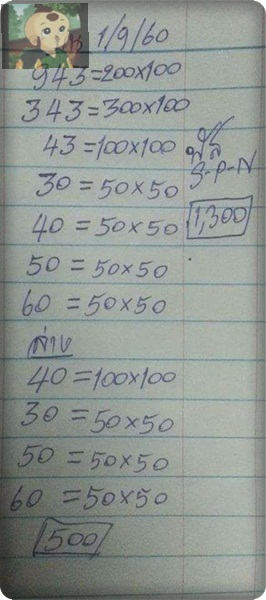 1/9/60
943=200x100
343=300x100
43=100x100
30=50x50
40=50x50
1,300
50=50x50
60=50x50
ล่าง
40=100x100
30=50x50
50=50x50
60=50x50
500